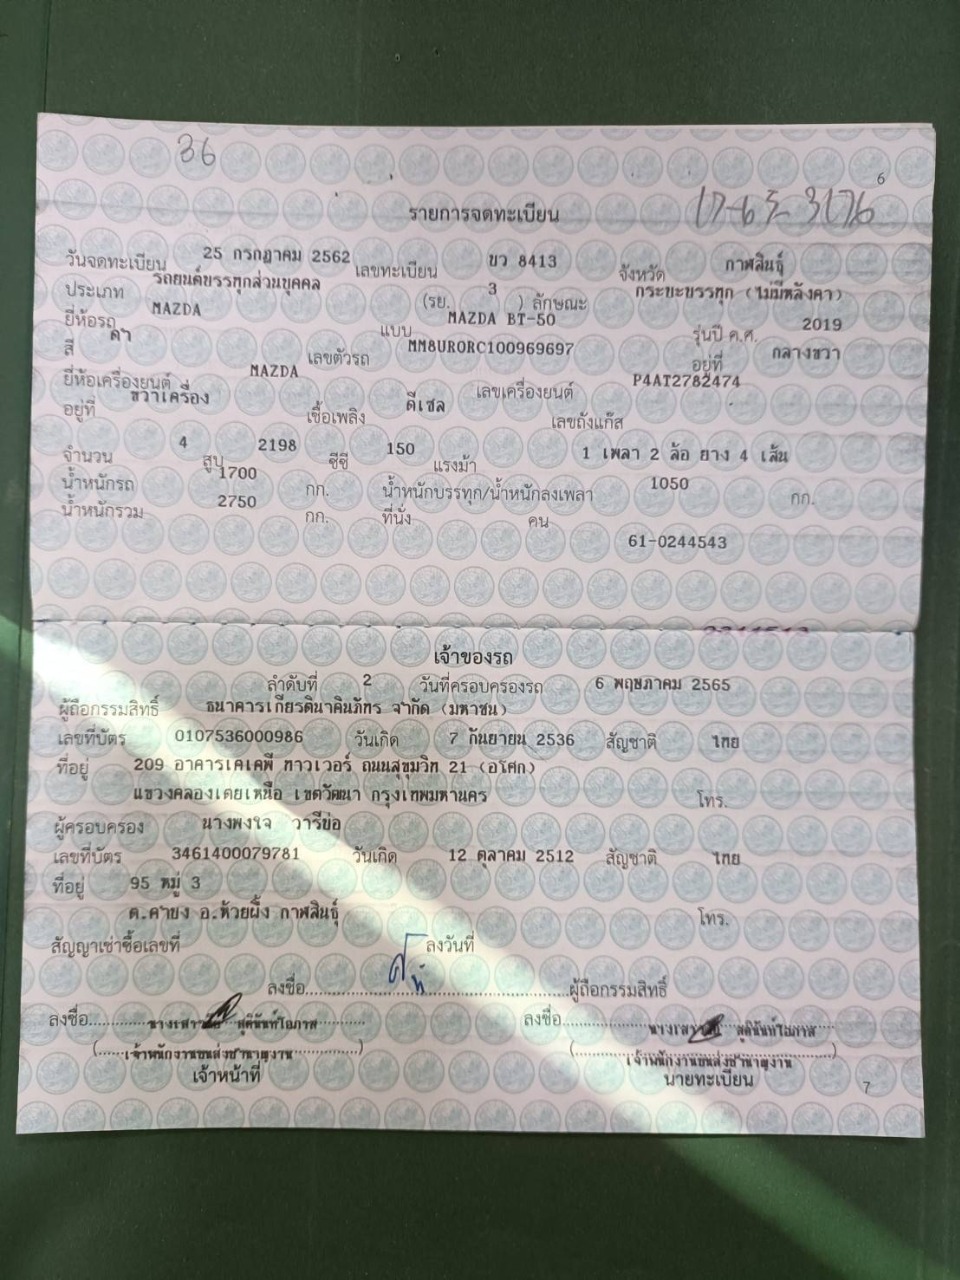 36
6
รายการจดทะเบียน
วันจดทะเบียน 25 กรกฎาคม 2562 เลขทะเบียน ขว 8413 จังหวัด กาฬสินธุ์
ประเภท รถยนต์บรรทุกส่วนบุคคล (รย. 3 ) ลักษณะ กระบะบรรทุก (ไม่มีหลังคา)
ยี่ห้อรถ MAZDA แบบ MAZDA BT-50 รุ่นปี ค.ศ. 2019
สี ดำ เลขตัวรถ MM8UR0RC100969697 อยู่ที่ กลางขวา
ยี่ห้อเครื่องยนต์ MAZDA เลขเครื่องยนต์ P4AT2782474
อยู่ที่ ขวาเครื่อง เชื้อเพลิง ดีเซล เลขถังแก๊ส
จำนวน 4 สูบ 2198 ซีซี 150 แรงม้า 1 เพลา 2 ล้อ ยาง 4 เส้น
น้ำหนักรถ 1700 กก. น้ำหนักบรรทุก/น้ำหนักลงเพลา 1050 กก.
น้ำหนักรวม 2750 กก. ที่นั่ง คน
61-0244543
เจ้าของรถ
ลำดับที่ 2 วันที่ครอบครองรถ 6 พฤษภาคม 2565
ผู้ถือกรรมสิทธิ์ ธนาคารเกียรตินาคินภัทร จำกัด (มหาชน)
เลขที่บัตร 0107536000986 วันเกิด 7 กันยายน 2536 สัญชาติ ไทย
ที่อยู่ 209 อาคารเคเคพี ทาวเวอร์ ถนนสุขุมวิท 21 (อโศก)
แขวงคลองเตยเหนือ เขตวัฒนา กรุงเทพมหานคร โทร.
ผู้ครอบครอง นางพงใจ วารีย่อ
เลขที่บัตร 3461400079781 วันเกิด 12 ตุลาคม 2512 สัญชาติ ไทย
ที่อยู่ 95 หมู่ 3
ต.คำบง อ.ห้วยผึ้ง กาฬสินธุ์ โทร.
สัญญาเช่าซื้อเลขที่ ลงวันที่
ลงชื่อ ผู้ถือกรรมสิทธิ์
ลงชื่อ สุตินันท์โอภาส ลงชื่อ สุตินันท์โอภาส
(เจ้าพนักงานขนส่งชำนาญงาน) (เจ้าพนักงานขนส่งชำนาญงาน)
เจ้าหน้าที่ นายทะเบียน
7